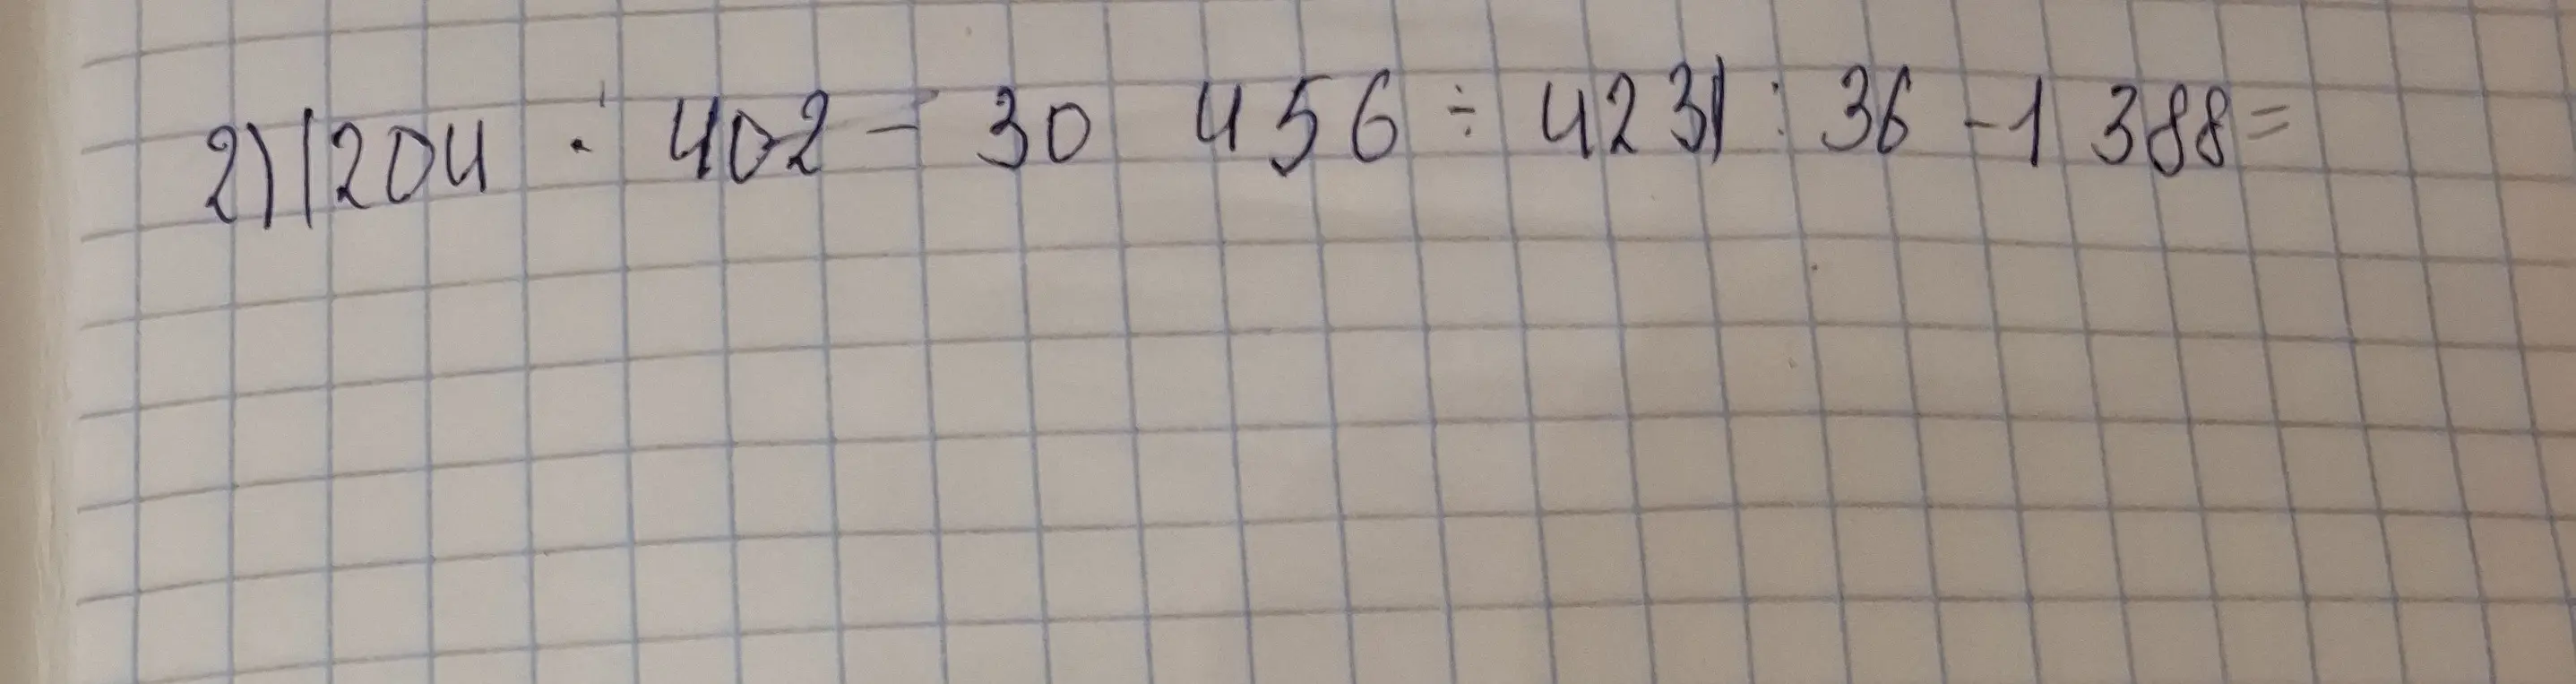 2) 1204 · 402 - 30 456 ÷ 4231 : 36 - 1 388 =